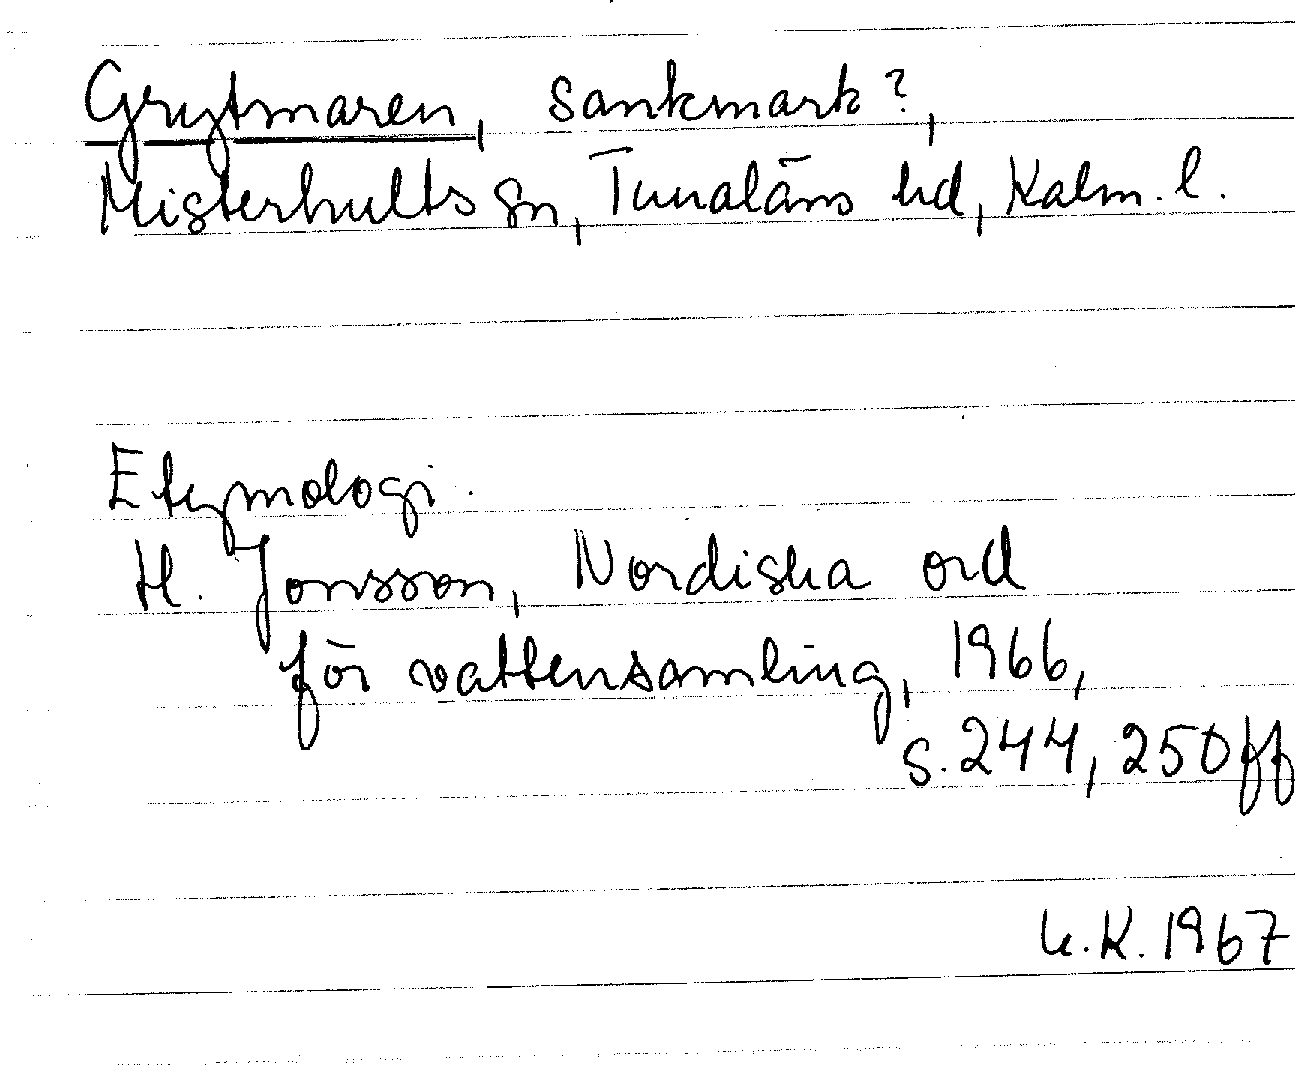 Grytmaren, sankmark?,
Misterhults sn, Tunaläns hd, Kalm. l.
Etymologi.
H. Jonsson, Nordiska ord
för vattensamling, 1966,
s. 244, 250ff
K. 1967